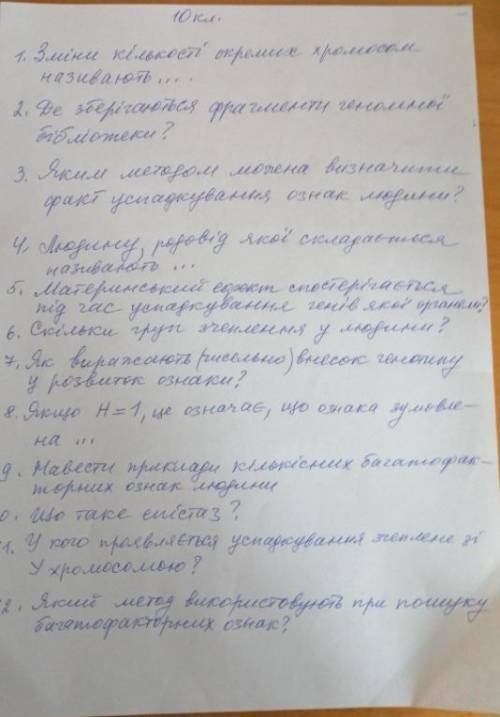 10 кл.
1. Зміни кількості окремих хромосом
називають ...
2. Де зберігаються фрагменти геномної
бібліотеки?
3. Яким методом можна визначити
факт успадкування ознак людини?
4. Людину, родовід якої складається
називають ...
5. Материнський ефект спостерігається
під час успадкування генів якої органели?
6. Скільки груп зчеплення у людини?
7. Як виражають (чисельно) внесок генотипу
у розвиток ознаки?
8. Якщо H=1, це означає, що ознака зумовле-
на ...
9. Навести приклади кількісних багатофак-
торних ознак людини
0. Що таке епістаз?
1. У кого проявляється успадкування зчеплене зі
У хромосомою?
2. Який метод використовують при пошуку
багатофакторних ознак?